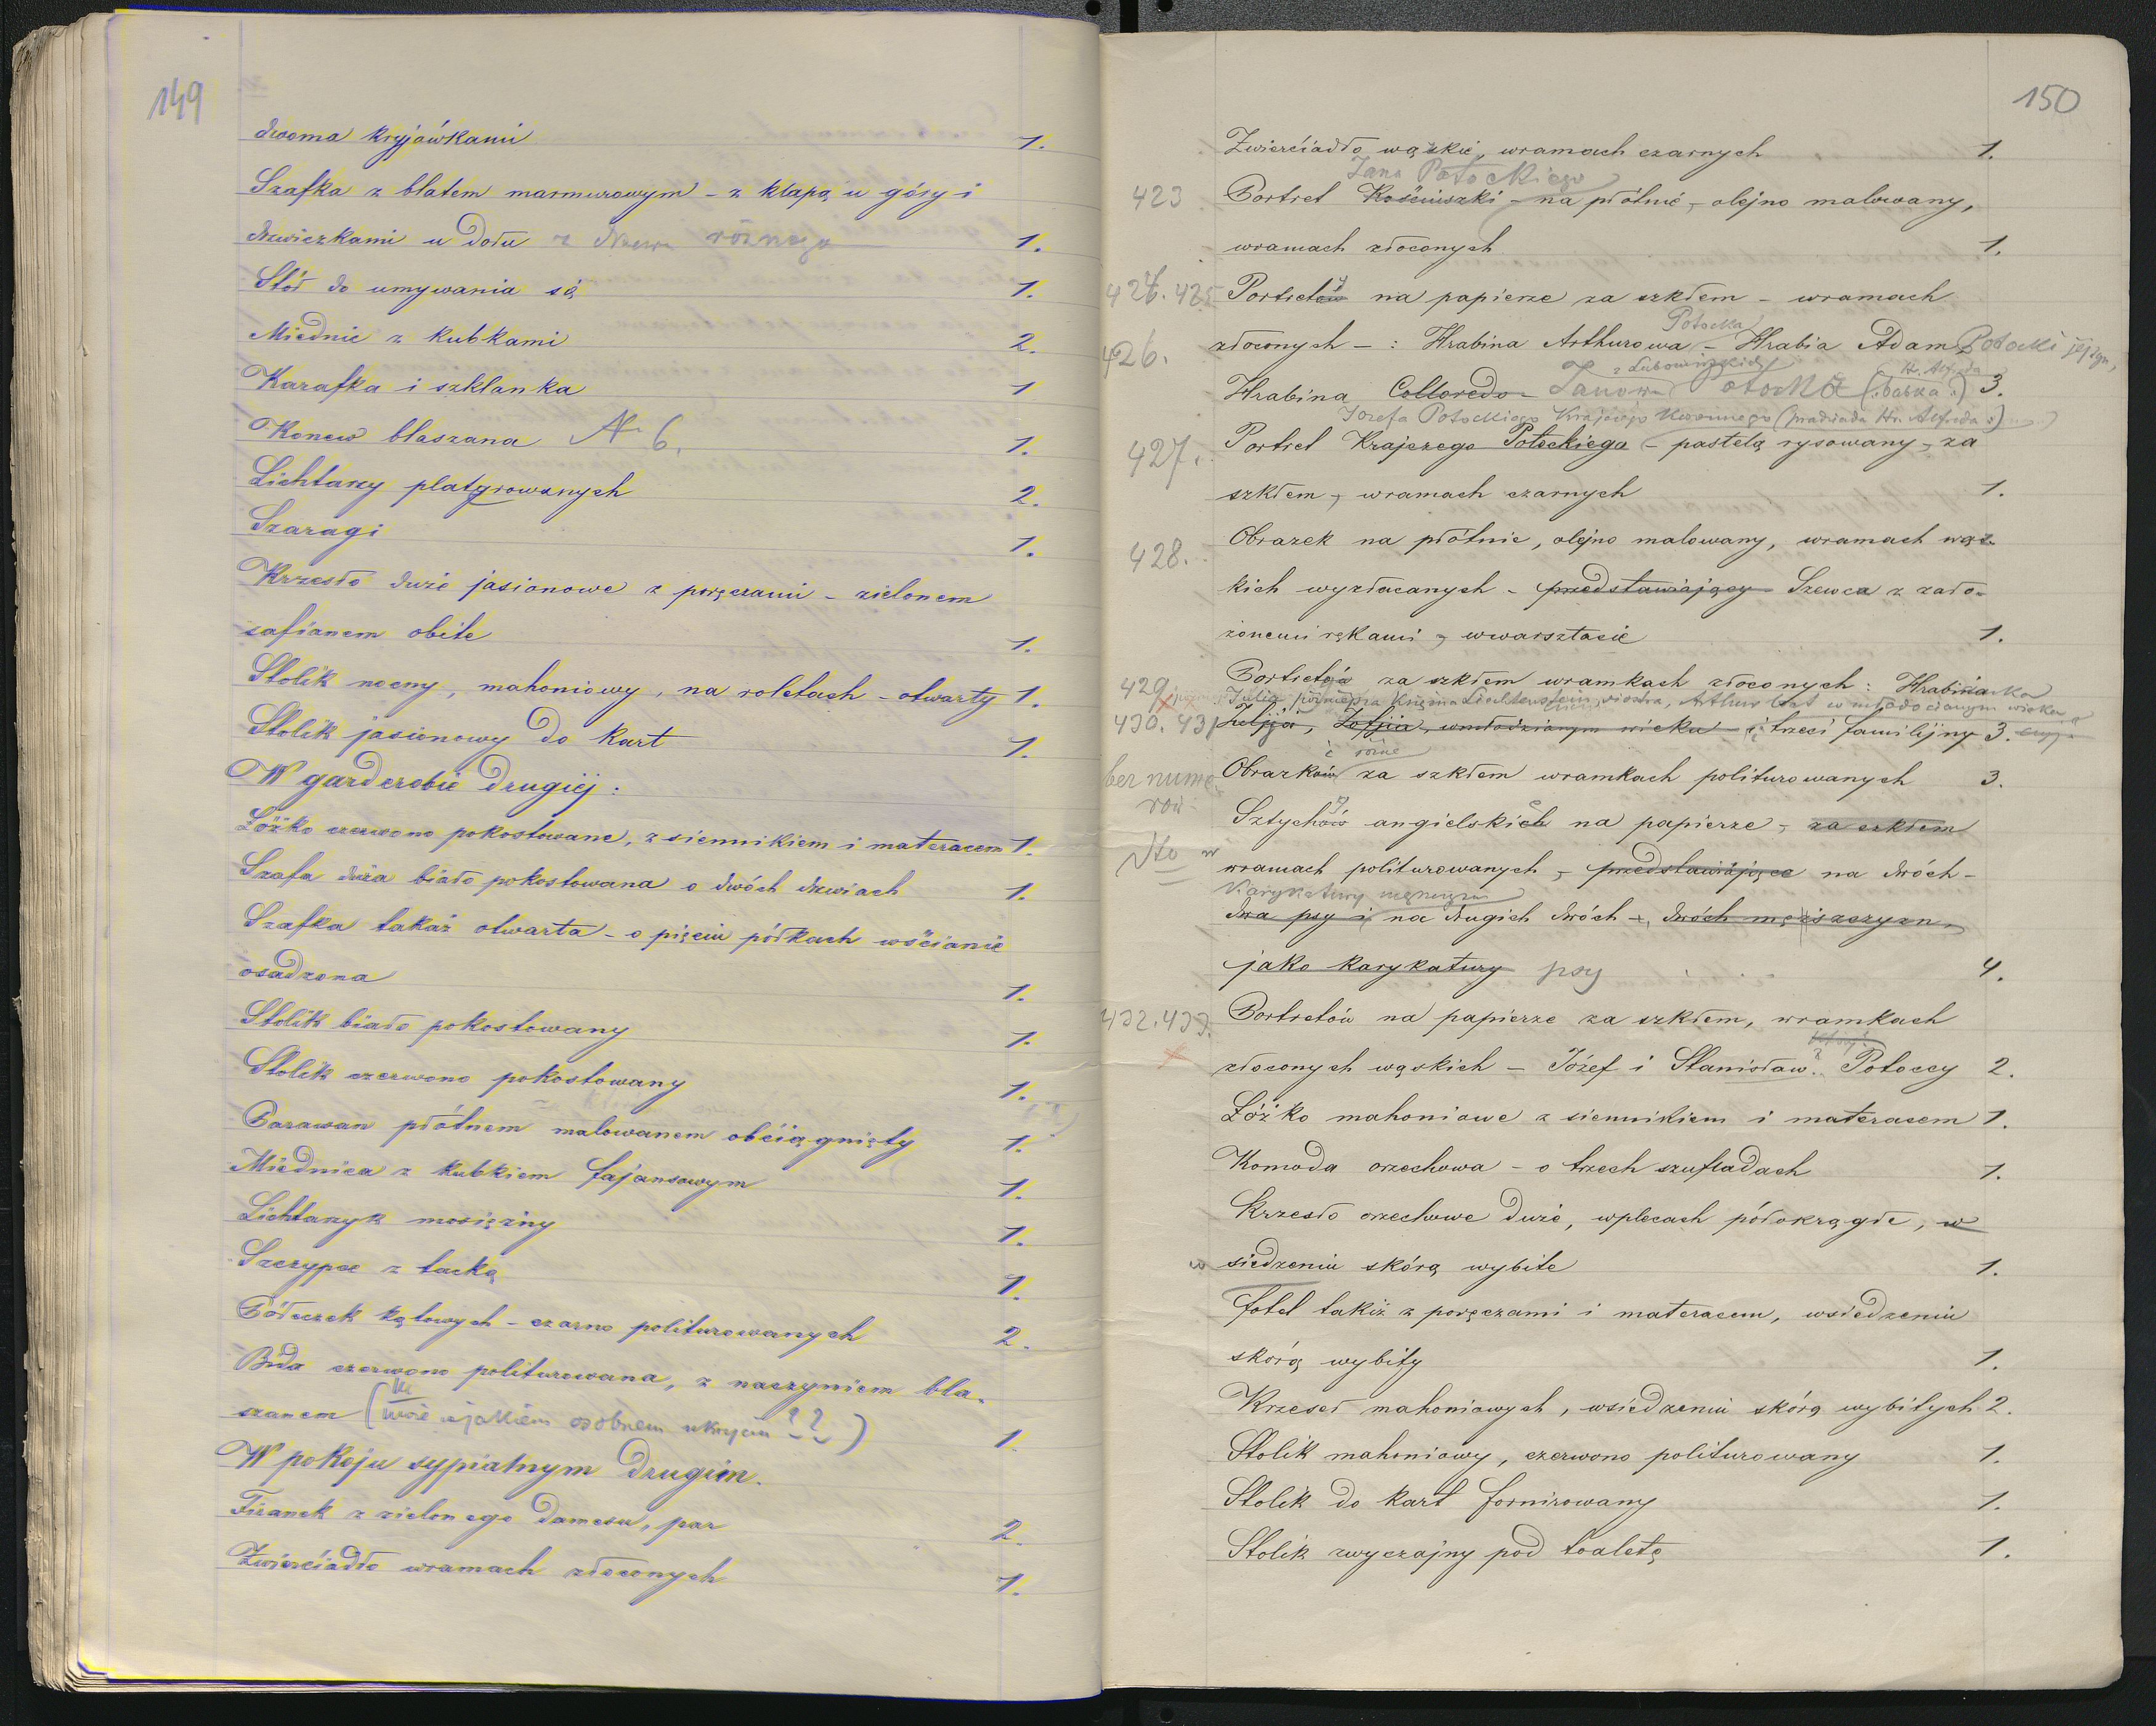 149
dwoma kryjówkami 1.
Szafka z blatem marmurowym - z klapą u góry i
drzwiczkami u dołu z drzewa różnego 1.
Stół do umywania się 1.
Miednic z kubkami 2.
Karafka i szklanka 1
Konew blaszana N 6. 1.
Lichtarzy platyrowanych 2.
Szaragi 1.
Krzesło duże jasionowe z poręczami - zielonem
safianem obite 1.
Stolik nocny, mahoniowy, na roletach - otwarty 1.
Stolik jasionowy do kart 1.
W garderobie drugiéj:
Łóżko czerwono pokostowane, z siennikiem i materacem 1.
Szafa duża biało pokostowana o dwóch drzwiach 1.
Szafka takaż otwarta - o pięciu półkach wścianie
osadzona 1.
Stolik biało pokostowany 1.
Stolik czerwono pokostowany 1.
Parawan płótnem malowanem obciągnięty 1.
Miednica z kubkiem fajansowym 1.
Lichtarzyk mosiężny 1.
Szczypce z tacką 1.
Półeczek kątowych - czarno politurowanych 2.
Bida czerwono politurowana, z naczyniem bla-
szanem (może w jakiem osobnem ukryciu ??) 1.
W pokoju sypialnym drugim.
Firanek z zielonego damasu, par 2.
Zwierciadło wramach złoconych 1.
150
Zwierciadło wązkie, wramach czarnych 1.
Jana Potockiego
423 Portret Kościuszki - na płótnie - olejno malowany,
wramach złoconych 1.
424. 425 Portretów y na papierze za szkłem - wramach
Potocka
426. złoconych - : Hrabina Arthurowa - Hrabia Adam Potocki jej syn,
z Lubomirskich Hr. Alfreda
Hrabina Colloredo - Janowa Potocka (:babka:) 3.
Józefa Potockiego Krajczego Koronnego (pradziada Hr. Alfreda:)
427. Portret Krajczego Potockiego - pastelą rysowany - za
szkłem, wramach czarnych 1.
428. Obrazek na płótnie, olejno malowany, wramach wąz-
kich wyzłacanych - przedstawiający Szewca z zało-
żonemi rękami, wwarsztacie 1.
429 Portretów za szkłem wramkach złoconych: Hrabianka
Julia późniejsza Księżna Liechtenstein, siostra, Arthur brat w młodocianym wieku
430. 431 Julija, Zofija, wmłodzianym wieku - i trzeci familijny 3.
i różne
bez nume- Obrazków za szkłem wramkach politurowanych 3.
rów Sztychów y angielskich e na papierze, za szkłem
dto w wramach politurowanych, przedstawiające na dwóch -
Karykatury mężczyzn
dwa psy i na drugich dwóch -, dwóch męższczyzn,
jako karykatury psy 4.
432. 433. Portretów na papierze za szkłem, wramkach
złoconych wąskich - Józef i Stanisław Potoccy 2.
Łóżko mahoniowe z siennikiem i materacem 1.
Komoda orzechowa - o trzech szufladach 1.
Krzesło orzechowe duże, wplecach półokrągłe, w
w siedzeniu skórą wybite 1.
Fotel takiż z poręczami i materacem, wsiedzeniu
skórą wybity 1.
Krzeseł mahoniowych, wsiedzeniu skórą wybitych 2.
Stolik mahoniowy, czerwono politurowany 1.
Stolik do kart fornirowany 1.
Stolik zwyczajny pod toaletę 1.